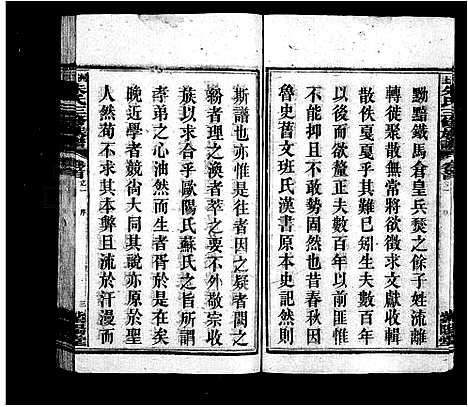 黝黯鐵馬倉皇兵燹之餘子姓流離
轉徙聚散無常將欲徵求文獻收輯
散佚戛戛乎其難已矧生夫數百年
以後而釐正夫數百年以前匪惟勢
不能抑亦不敢勢固然也昔春秋因
魯史舊文班氏漢書原本史記然則
斯譜也亦惟是往者因之疑者闕之
紛者理之渙者萃之要不外敬宗收
族以求合乎歐陽氏蘇氏之旨所謂
孝弟之心油然而生者胥於是乎在
晚近學者競尚大同其說亦原於聖
人然苟不求其本弊且流於汗漫而
朱氏三修族譜
卷首之一
序
三
紫陽堂